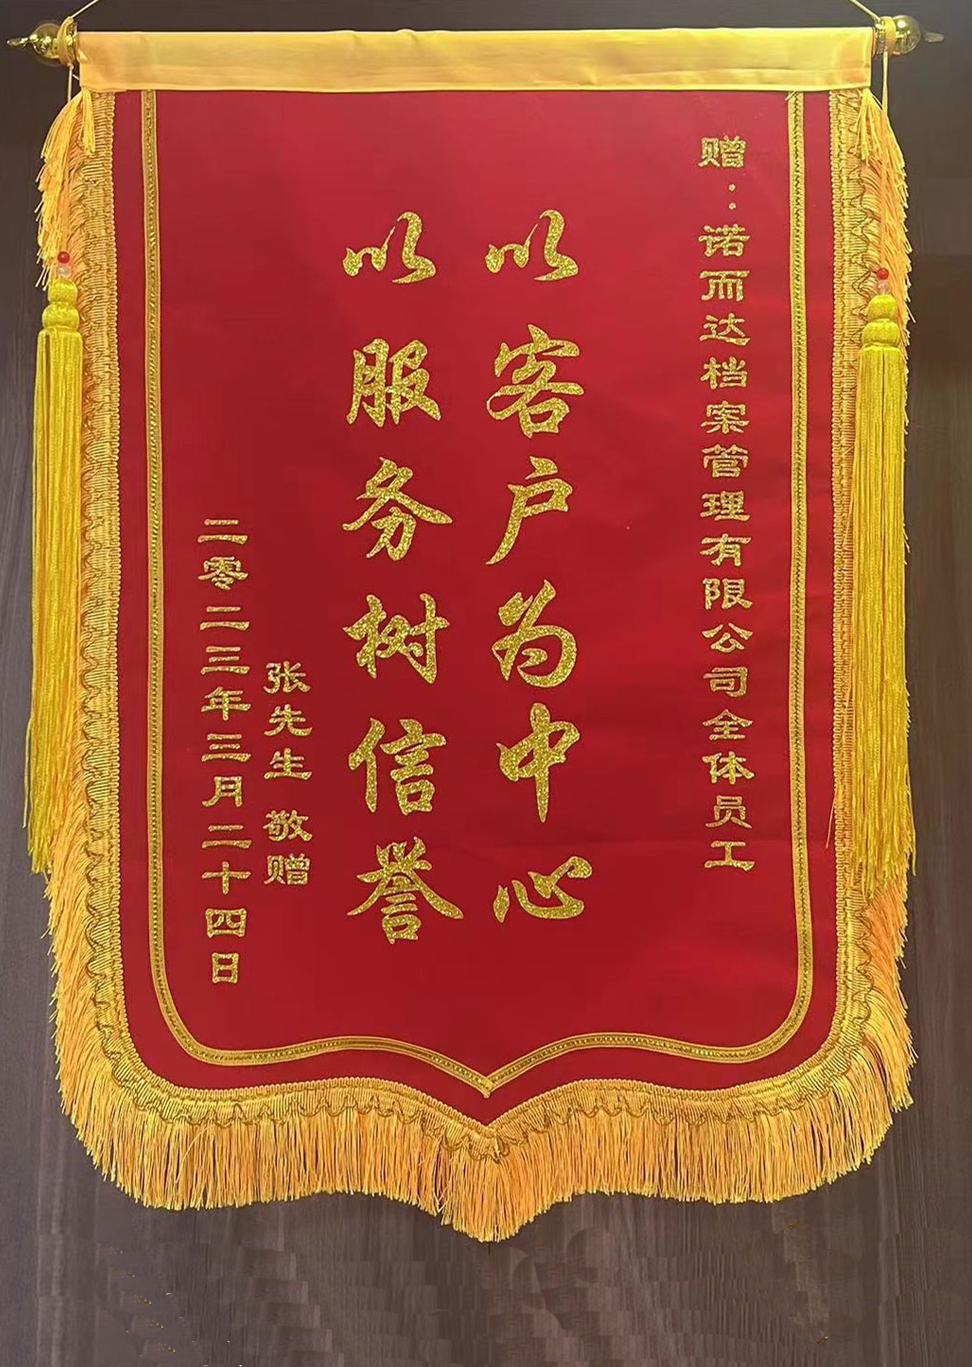 赠：诺而达档案管理有限公司全体员工
以客户为中心
以服务树信誉
张先生 敬赠
二零二三年三月二十四日